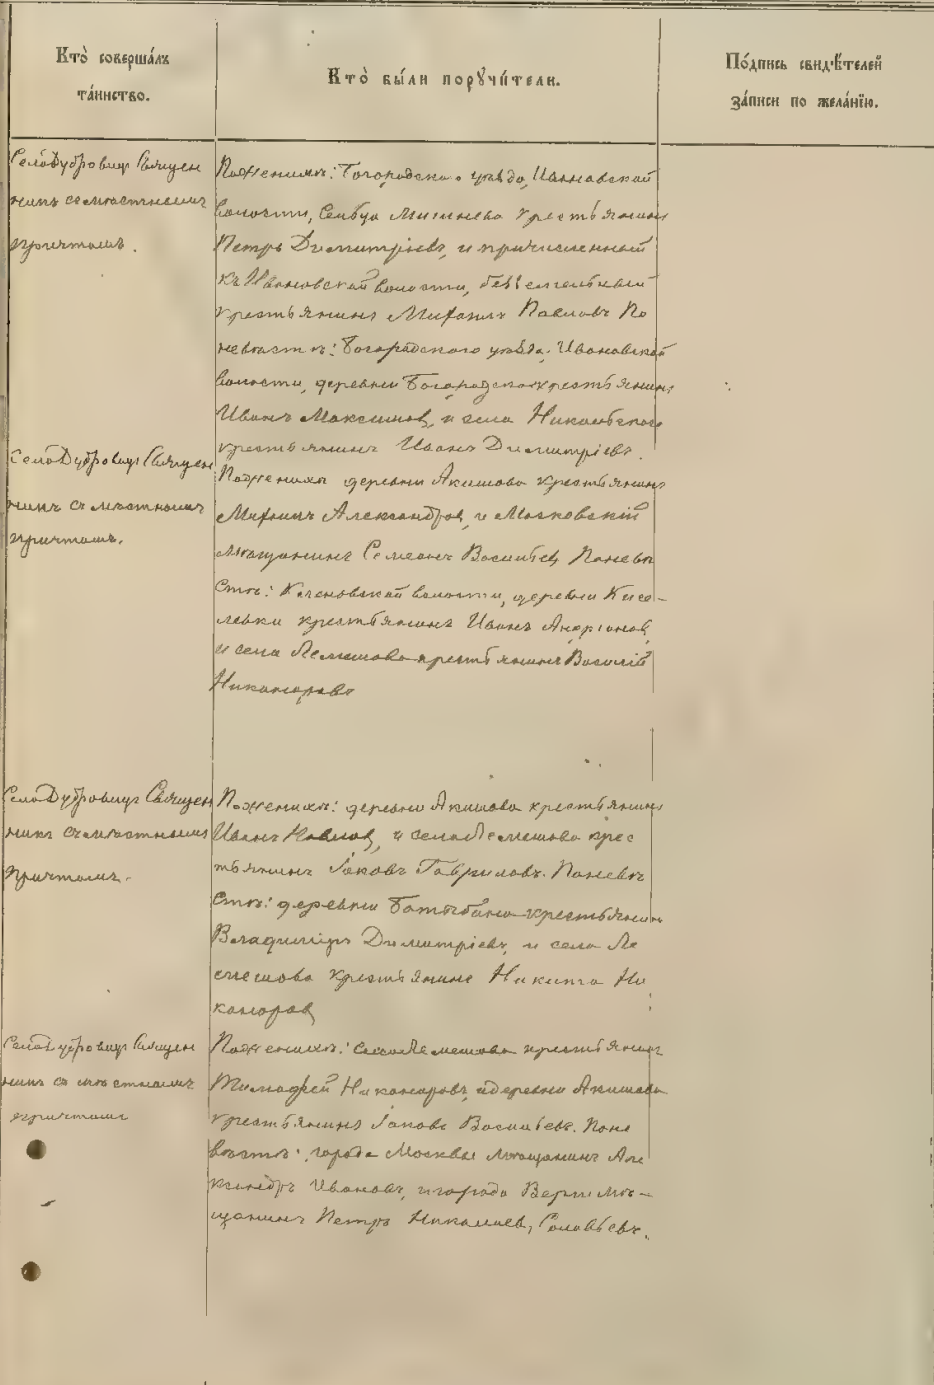 Кто̀ соверша́лъ
та́инство.
Кто̀ бы́ли порꙋчи́тели.
По́дпись свидѣ́телей
за́писи по жела́нїю.
Село Дубровицъ Священ
никъ съ мѣстнымъ
причтомъ.
По женихѣ: Богородскаго уѣзда, Ивановской
волости, крестьянинъ
Петръ Димитріевъ, и причисленный
къ Ивановской волости, безземельный
крестьянинъ Михаилъ Павловъ По
невѣстѣ: Богородского уѣзда, Ивановской
волости, деревни Богородской крестьянинъ
Иванъ Максимов, и села Никольского
крестьянинъ Иванъ Димитріевъ.
Село Дубровицъ Священ
никъ съ мѣстнымъ
причтомъ.
По женихѣ деревни Акишова крестьянинъ
Александров, и Московскій
мѣщанинъ Семеонъ Васильев, По невѣ
стѣ: волости, деревни Кисе-
левки крестьянинъ Иванъ Андріанов,
и села Лемешово крестьянинъ Василій
Никаноровъ
Село Дубровицъ Священ
никъ съ мѣстнымъ
причтомъ.
По женихѣ: деревни Акишова крестьянинъ
Иванъ Павлов, и села Лемешово крес
тьянинъ Іаковъ Гавриловъ. По невѣ
стѣ: деревни крестьянинъ
Владиміръ Димитріевъ, и села Ле
мешова крестьянинъ Никита Ни
каноров
Село Дубровицъ Священ
никъ съ мѣстнымъ
причтомъ
По женихѣ: села Лемешова крестьянинъ
Тимофей Никаноровъ, и деревни Акишова
крестьянинъ Іаковъ Васильевъ. По не
вѣстѣ: города Москвы мѣщанинъ Але
ксандръ Ивановъ, и города Вереи мѣ-
щанинъ Петръ Николаев, Соловьевъ.